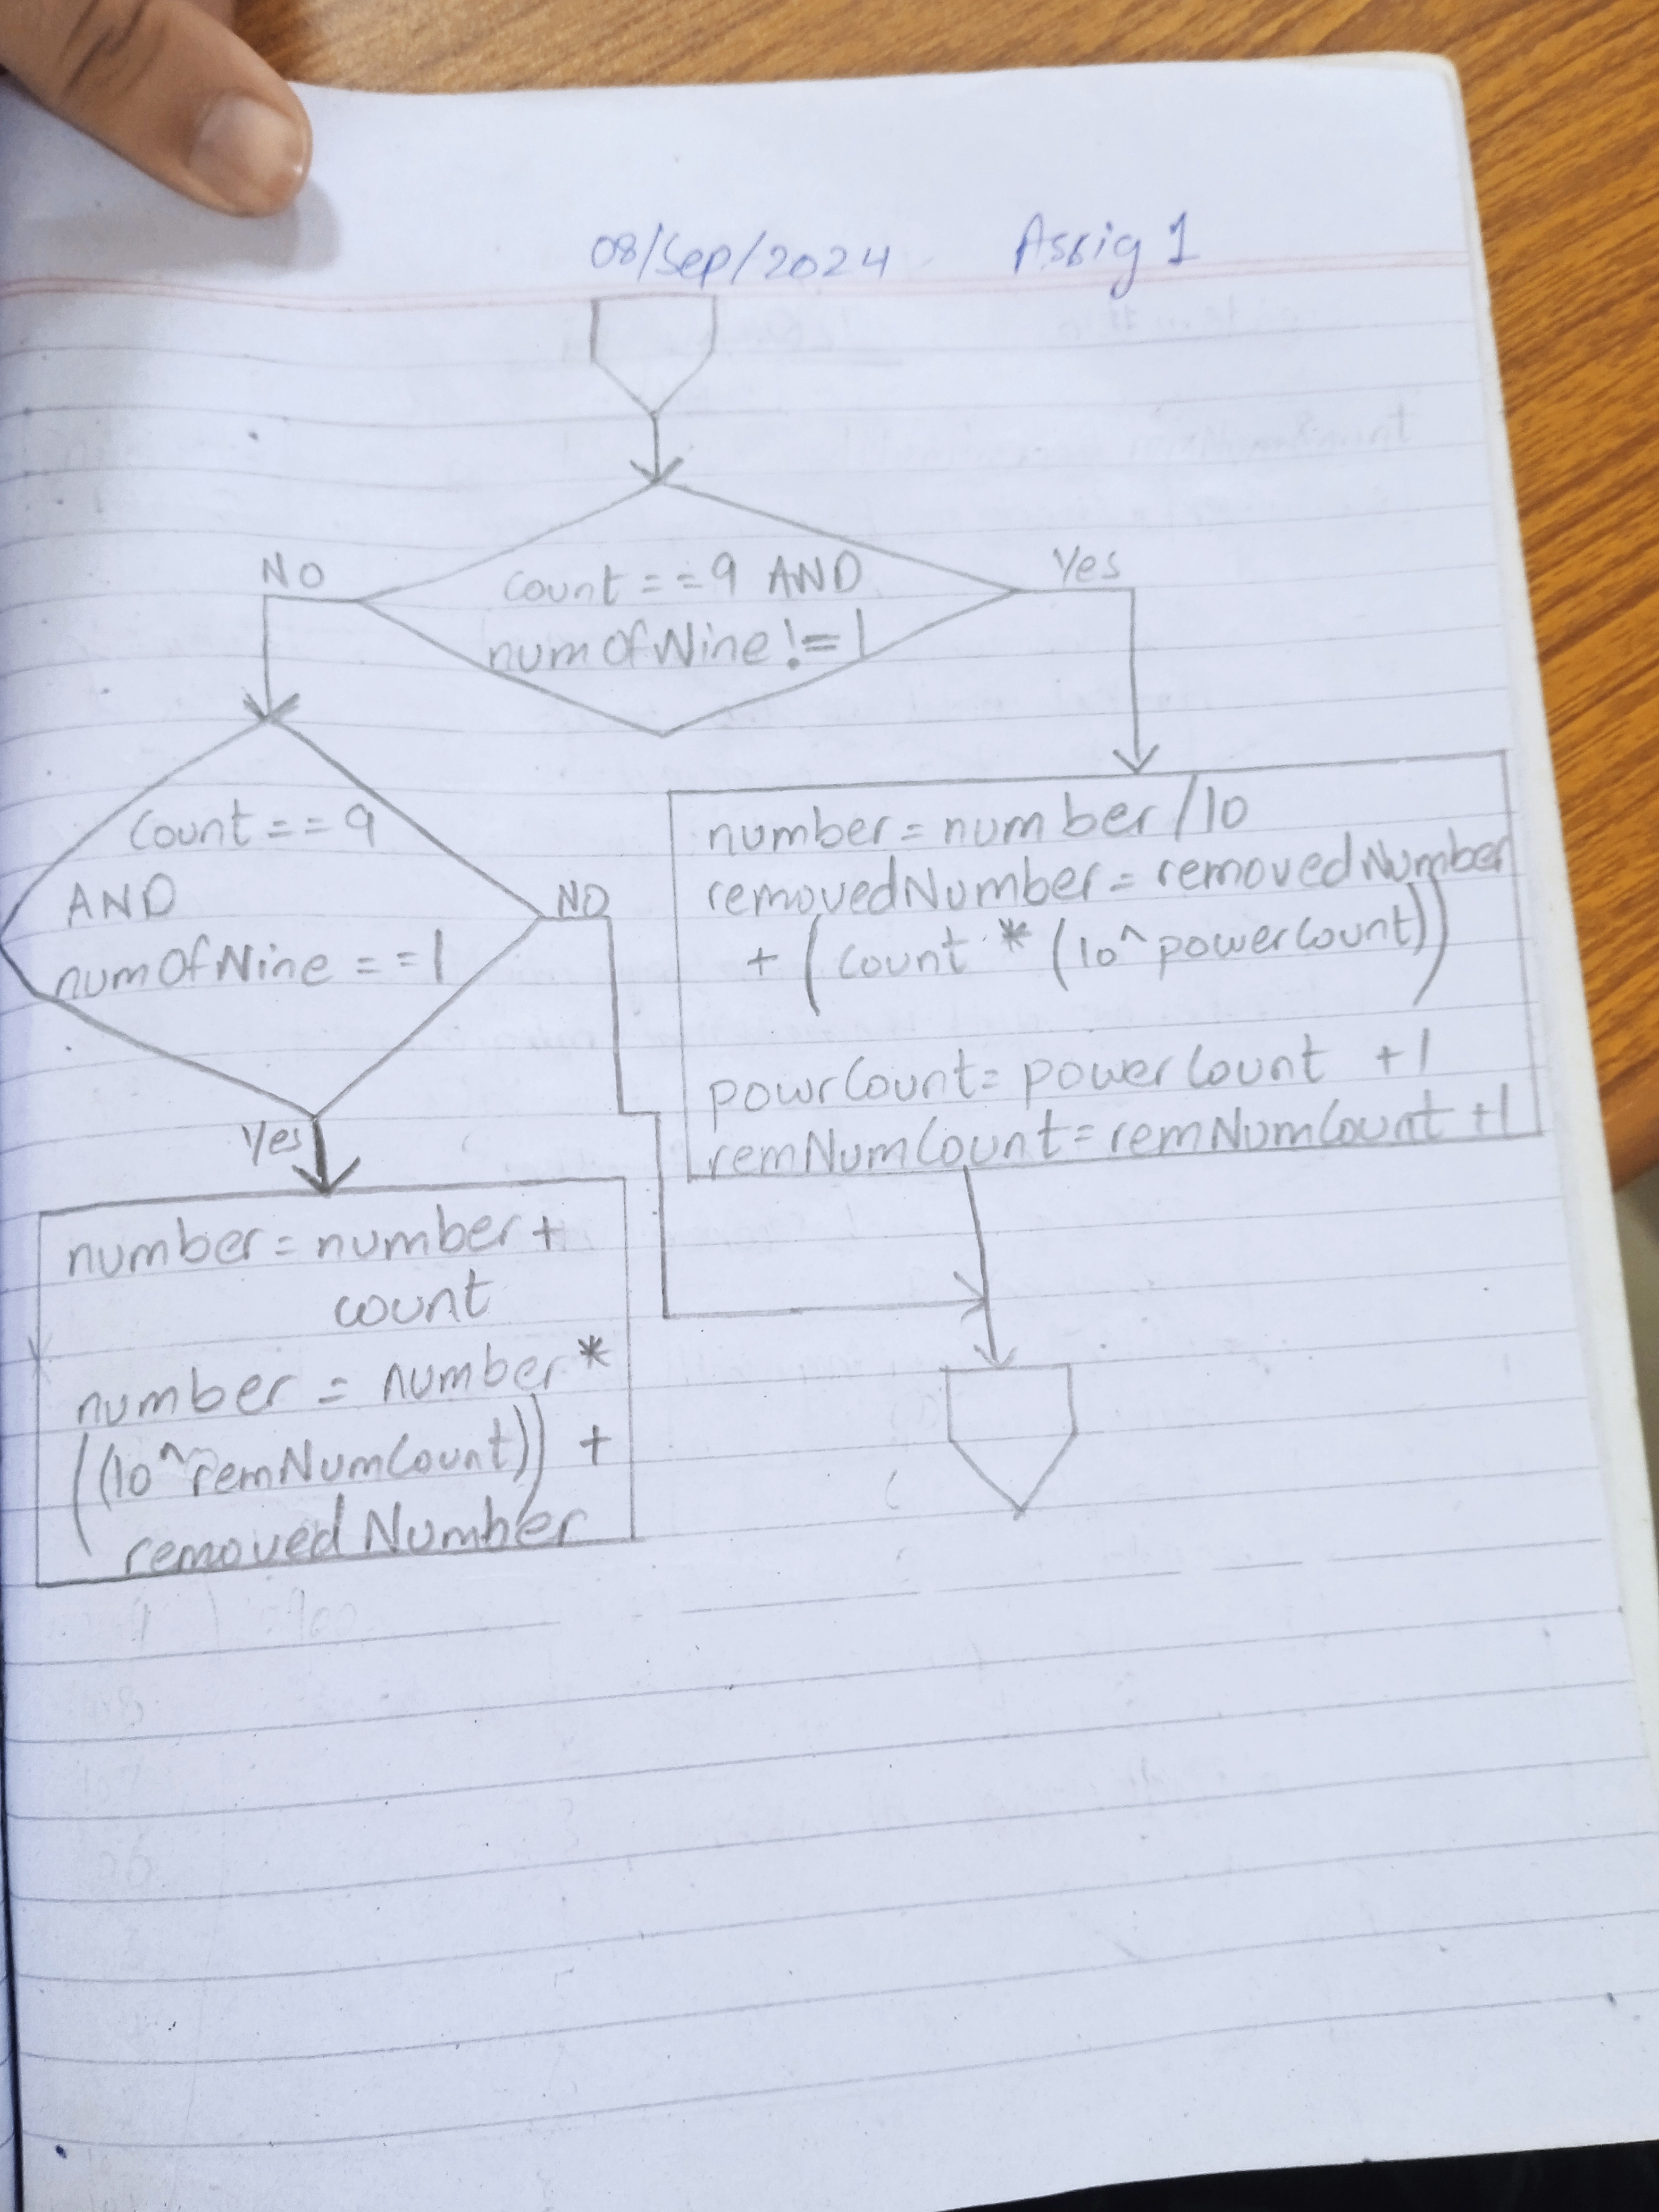 08/Sep/2024 Assig 1
NO
count == 9 AND
numOfNine != 1
Yes
Count == 9
AND
numOfNine == 1
NO
Yes
number = number /10
removedNumber = removedNumber
+ (count * (10^powerCount))
powrCount = powerCount +1
remNumCount = remNumCount +1
number = number +
count
number = number *
((10^remNumCount)) +
removedNumber